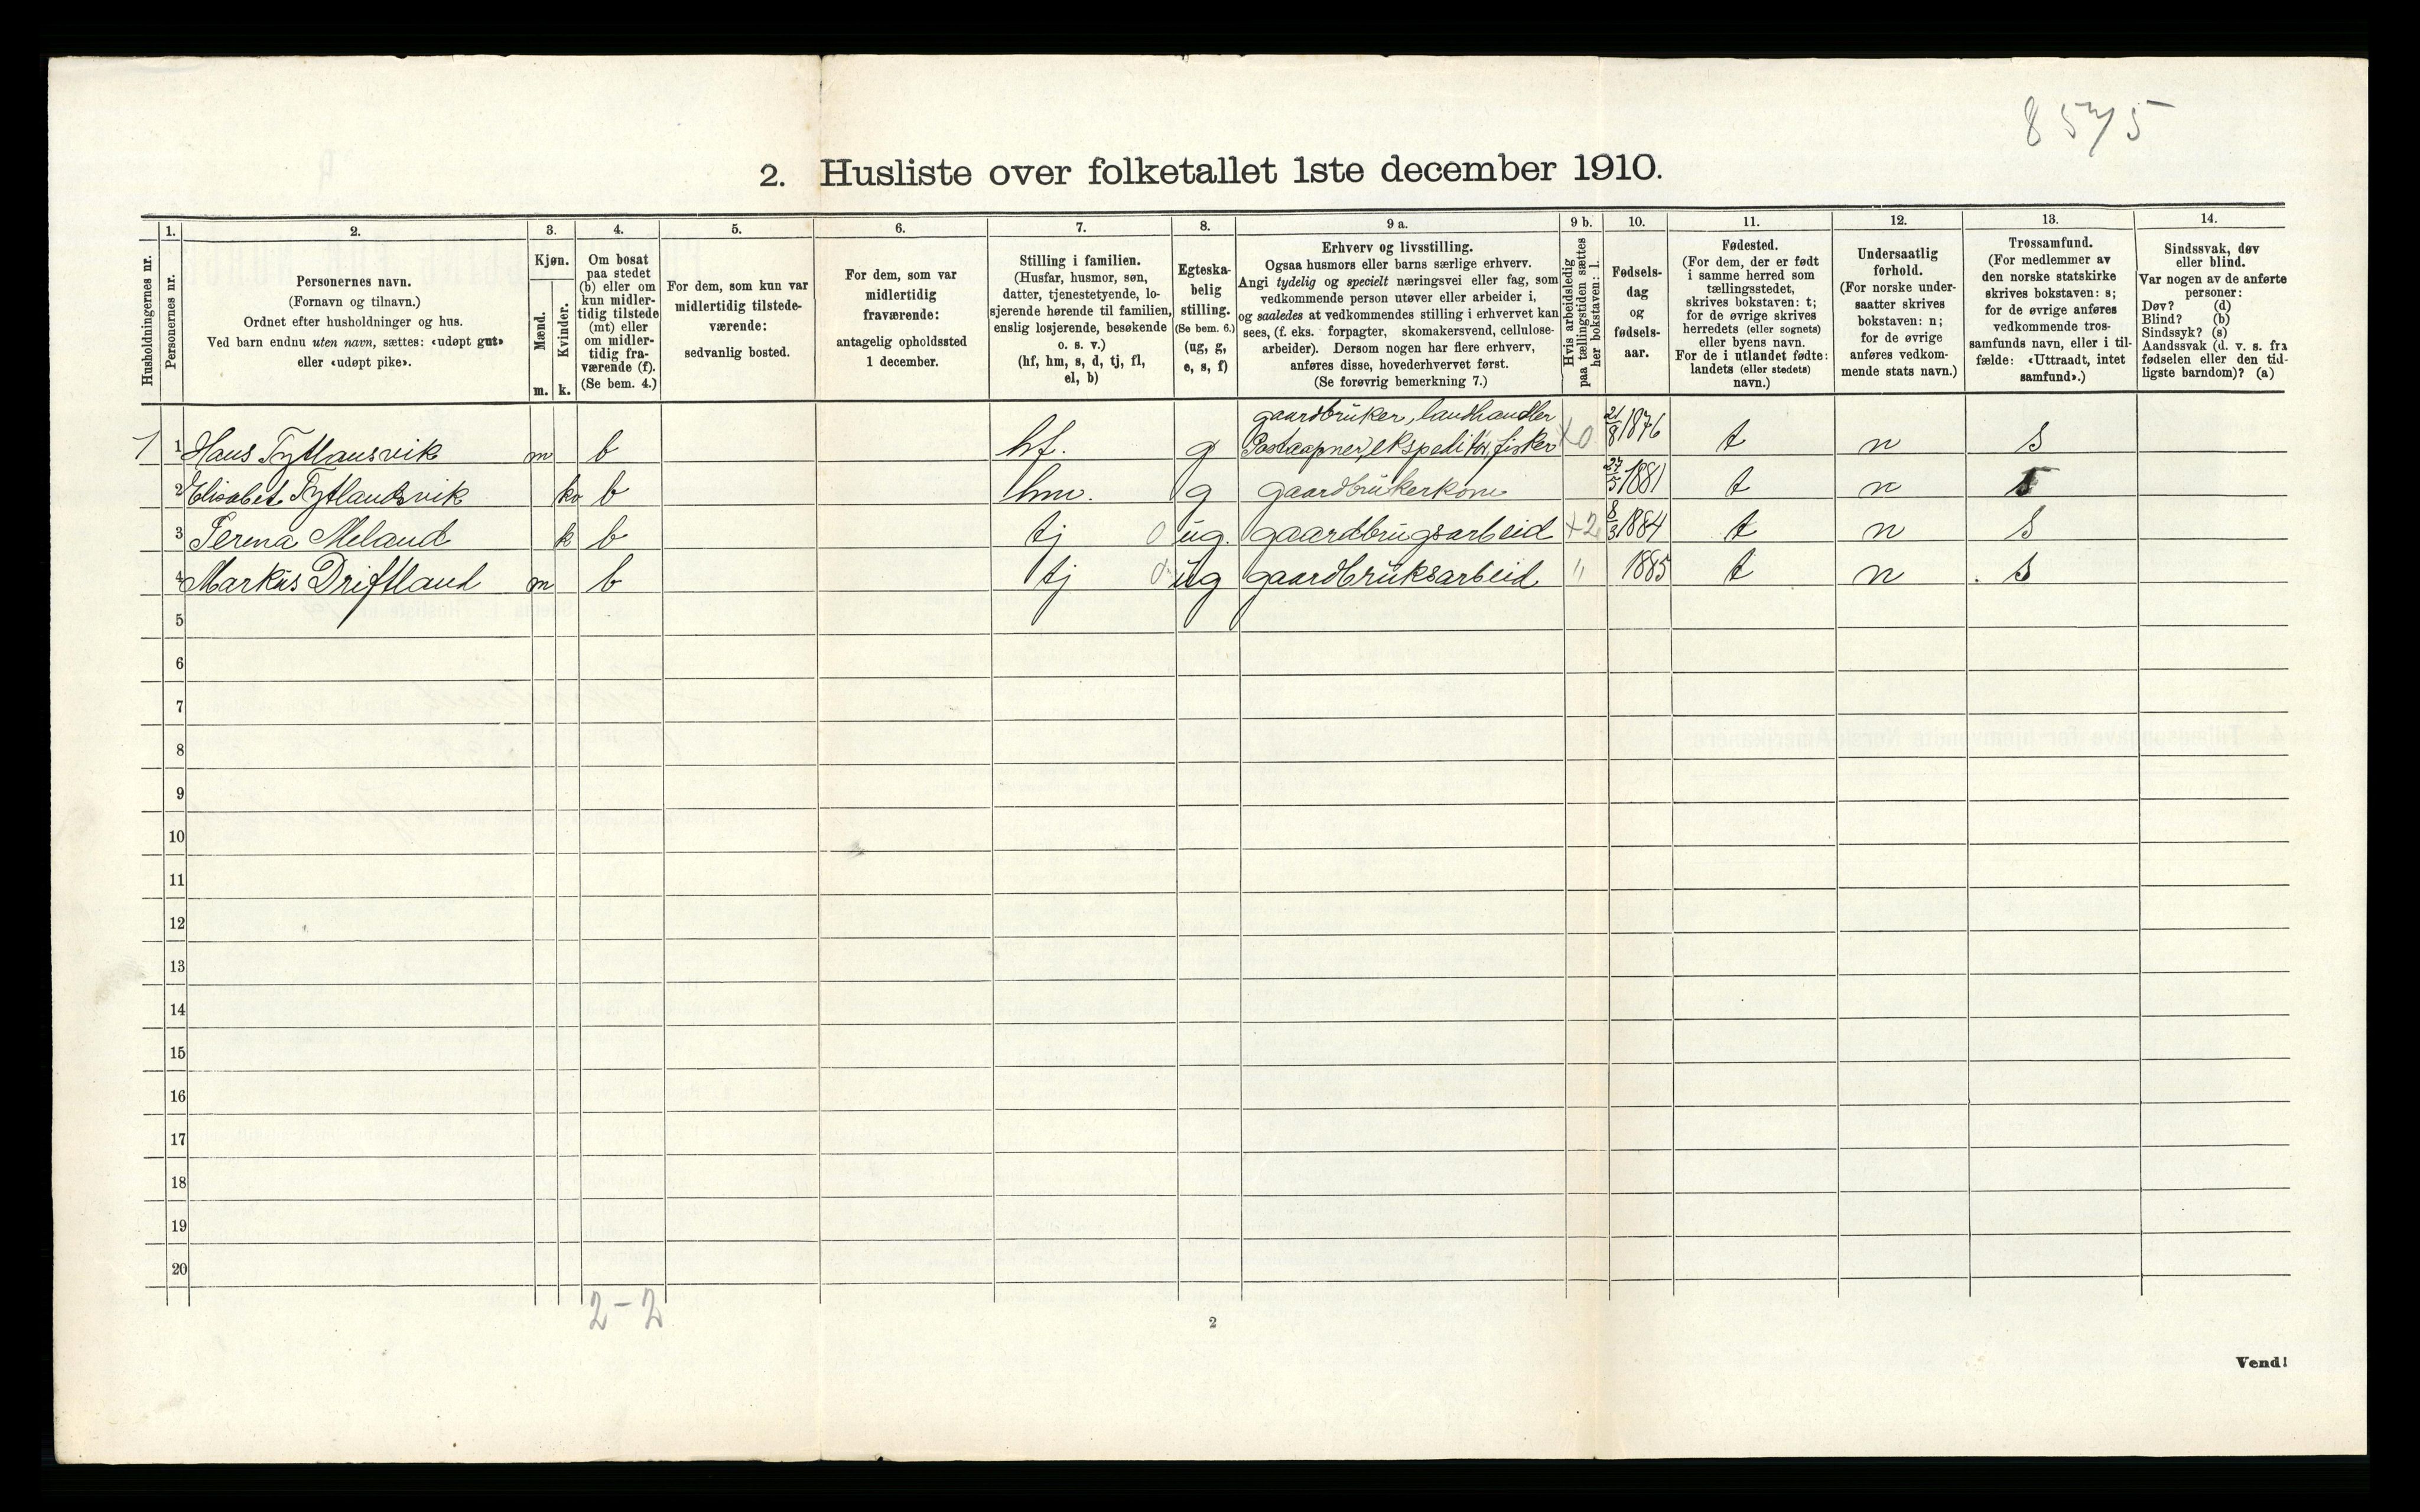 8575
2. Husliste over folketallet 1ste december 1910.
Husholdningernes nr.
1.
Personernes nr.
2.
Personernes navn.
(Fornavn og tilnavn.)
Ordnet efter husholdninger og hus.
Ved barn endnu uten navn, sættes: «udøpt gut»
eller «udøpt pike».
3.
Kjøn.
Mænd.
Kvinder.
m. k.
4.
Om bosat
paa stedet
(b) eller om
kun midler-
tidig tilstede
(mt) eller
om midler-
tidig fra-
værende (f).
(Se bem. 4.)
5.
For dem, som kun var
midlertidig tilstede-
værende:
sedvanlig bosted.
6.
For dem, som var
midlertidig
fraværende:
antagelig opholdssted
1 december.
7.
Stilling i familien.
(Husfar, husmor, søn,
datter, tjenestetyende, lo-
sjerende hørende til familien,
enslig losjerende, besøkende
o. s. v.)
(hf, hm, s, d, tj, fl,
el, b)
8.
Egteska-
belig
stilling.
(Se bem. 6.)
(ug, g,
e, s, f)
9 a.
Erhverv og livsstilling.
Ogsaa husmors eller barns særlige erhverv.
Angi tydelig og specielt næringsvei eller fag, som
vedkommende person utøver eller arbeider i,
og saaledes at vedkommendes stilling i erhvervet kan
sees, (f. eks. forpagter, skomakersvend, cellulose-
arbeider). Dersom nogen har flere erhverv,
anføres disse, hovederhvervet først.
(Se forøvrig bemerkning 7.)
9 b.
Hvis arbeidsledig
paa tællingstiden sættes
her bokstaven: l.
10.
Fødsels-
dag
og
fødsels-
aar.
11.
Fødested.
(For dem, der er født
i samme herred som
tællingsstedet,
skrives bokstaven: t;
for de øvrige skrives
herredets (eller sognets)
eller byens navn.
For de i utlandet fødte:
landets (eller stedets)
navn.)
12.
Undersaatlig
forhold.
(For norske under-
saatter skrives
bokstaven: n;
for de øvrige
anføres vedkom-
mende stats navn.)
13.
Trossamfund.
(For medlemmer av
den norske statskirke
skrives bokstaven: s;
for de øvrige anføres
vedkommende tros-
samfunds navn, eller i til-
fælde: «Uttraadt, intet
samfund».)
14.
Sindssvak, døv
eller blind.
Var nogen av de anførte
personer:
Døv? (d)
Blind? (b)
Sindssyk? (s)
Aandssvak (d. v. s. fra
fødselen eller den tid-
ligste barndom)? (a)
gaardbruker, landhandler
1 1 Hans Tytlansvik m b hf. g Postaapner, ekspeditør, fisker X0 21/8 1876 t n s
2 Elisabet Tytlandsvik kv b hm. g gaardbrukerkone 27/5 1881 t n s
3 Perma Meland k b tj 0 ug. gaardbrugsarbeid +2 8/3 1884 t n s
4 Markus Driftland m b tj 0 ug gaardbruksarbeid " 1885 t n s
5
6
7
8
9
10
11
12
13
14
15
16
17
18
19
20
2-2
2
Vend!